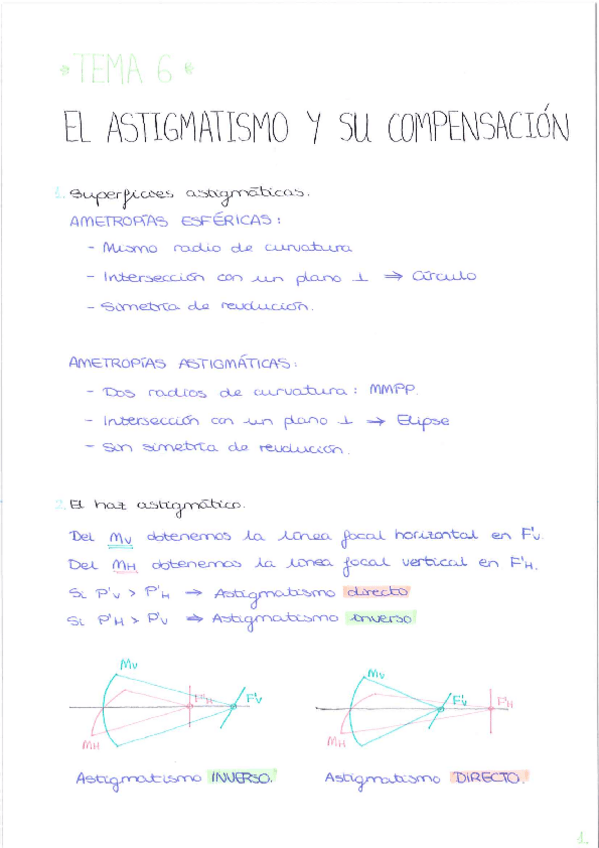 *TEMA 6*
EL ASTIGMATISMO Y SU COMPENSACIÓN
1. Superficies astigmáticas.
AMETROPÍAS ESFÉRICAS:
- Mismo radio de curvatura
- Intersección con un plano ⊥ ⇒ Círculo
- Simetría de revolución.
AMETROPÍAS ASTIGMÁTICAS:
- Dos radios de curvatura: MMPP.
- Intersección con un plano ⊥ → Elipse
- Sin simetría de revolución.
2. El haz astigmático.
Del Mv obtenemos la línea focal horizontal en F'v.
Del MH obtenemos la línea focal vertical en F'H.
Si P'v > P'H → Astigmatismo directo
Si P'H > P'v → Astigmatismo inverso
Mv F'H F'v MH
Mv F'v F'H MH
Astigmatismo INVERSO. Astigmatismo DIRECTO.
1.